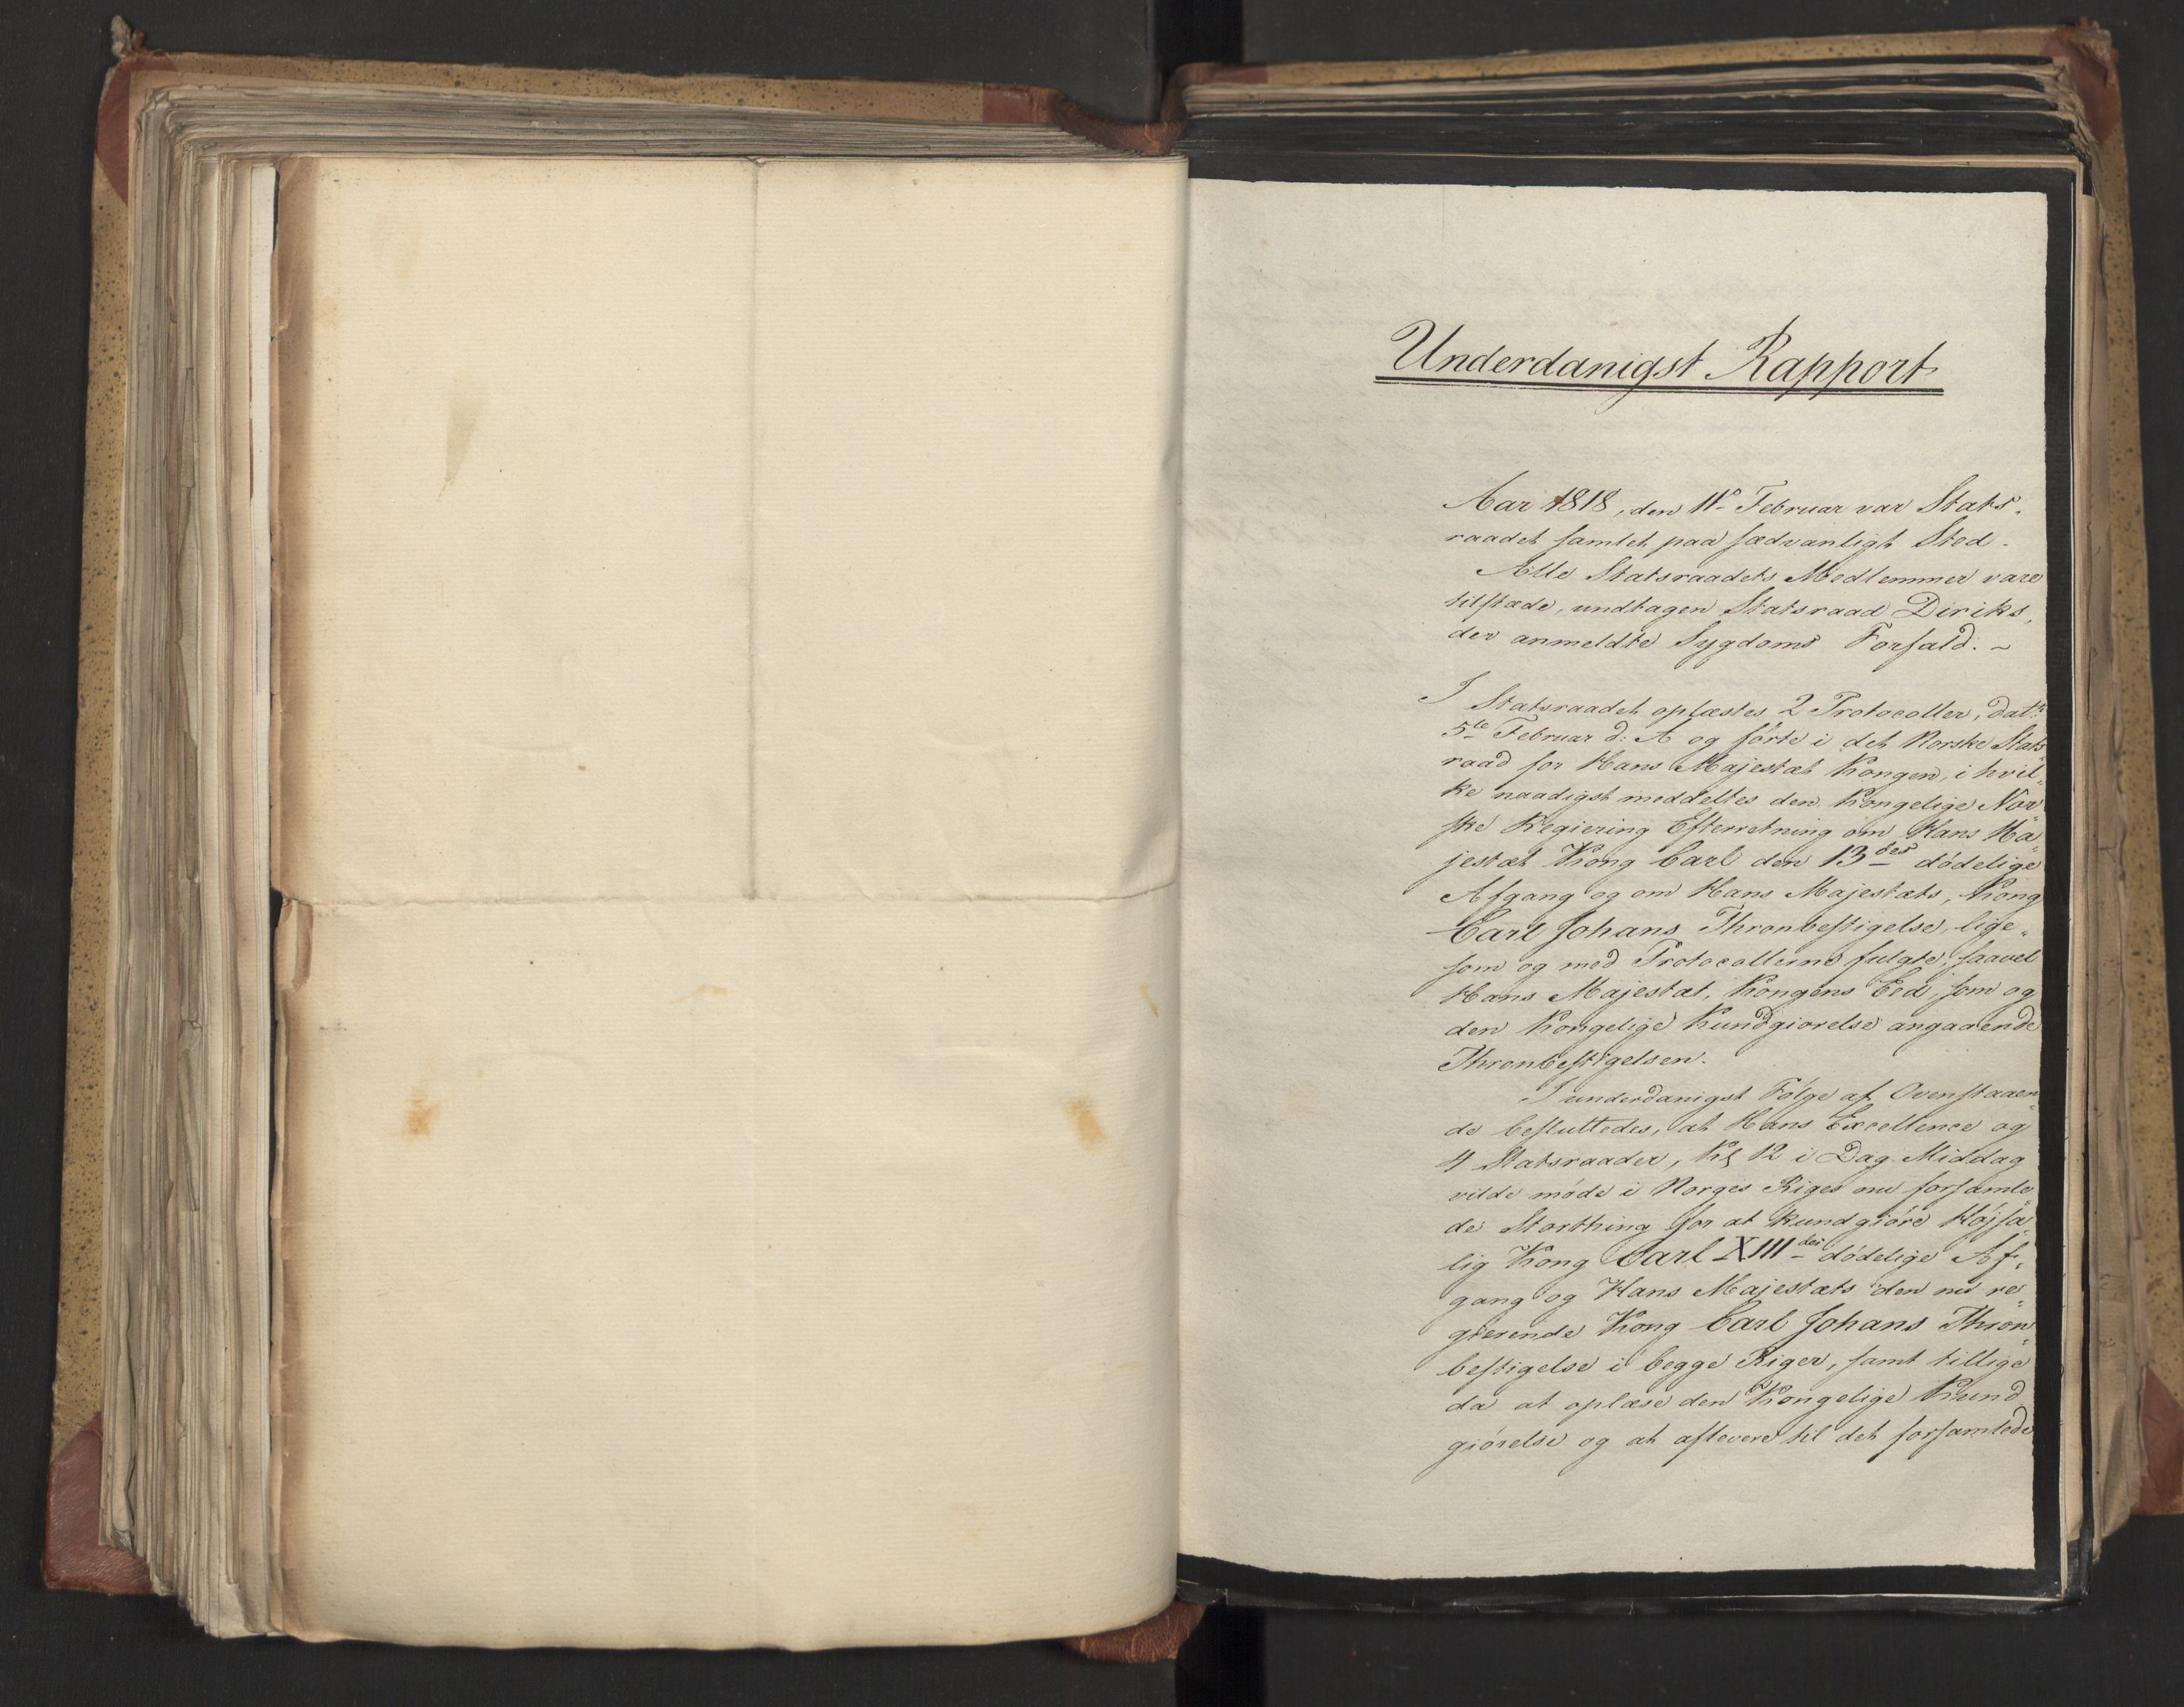 Underdanigst Rapport
Aar 1818, den 11te Februar var Stats-
raadet samlet paa sædvanligt Sted.
Alle Statsraadets Medlemmer vare
tilstæde, undtagen Statsraad Diriks,
der anmeldte Sygdoms Forfald. ~
I Statsraadet oplæstes 2 Protocoller, datt:
5te Februar d: A og førte i det Norske Stats
raad for Hans Majestæt Kongen, i hvil-
ke naadigst meddeltes den Kongelige Nor
ske Regiering Efterretning om Hans Ma
jestæt Kong Carl den 13des dødelige
Afgang og om Hans Majestæts, Kong
Carl Johans Thronbestigelse, lige-
som og med Protocollerne fulgte, saavel
Hans Majestæt, Kongens Eed, som og
den Kongelige Kundgiørelse angaaende
Thronbestigelsen.
I underdanigst Følge af Ovenstaaen
de besluttedes, at Hans Excellence og
4 Statsraader, Kl 12 i Dag Middag
vilde møde i Norges Riges nu forsamle
de Storthing for at kundgiøre Højsa
lig Kong Carl XIIIdes dødelige Af-
gang og Hans Majestæts den nu re
gierende Kong Carl Johans Thron
bestigelse i begge Riger, samt tillige
da at oplæse den Kongelige Kund
giørelse og at aflevere til det forsamlede